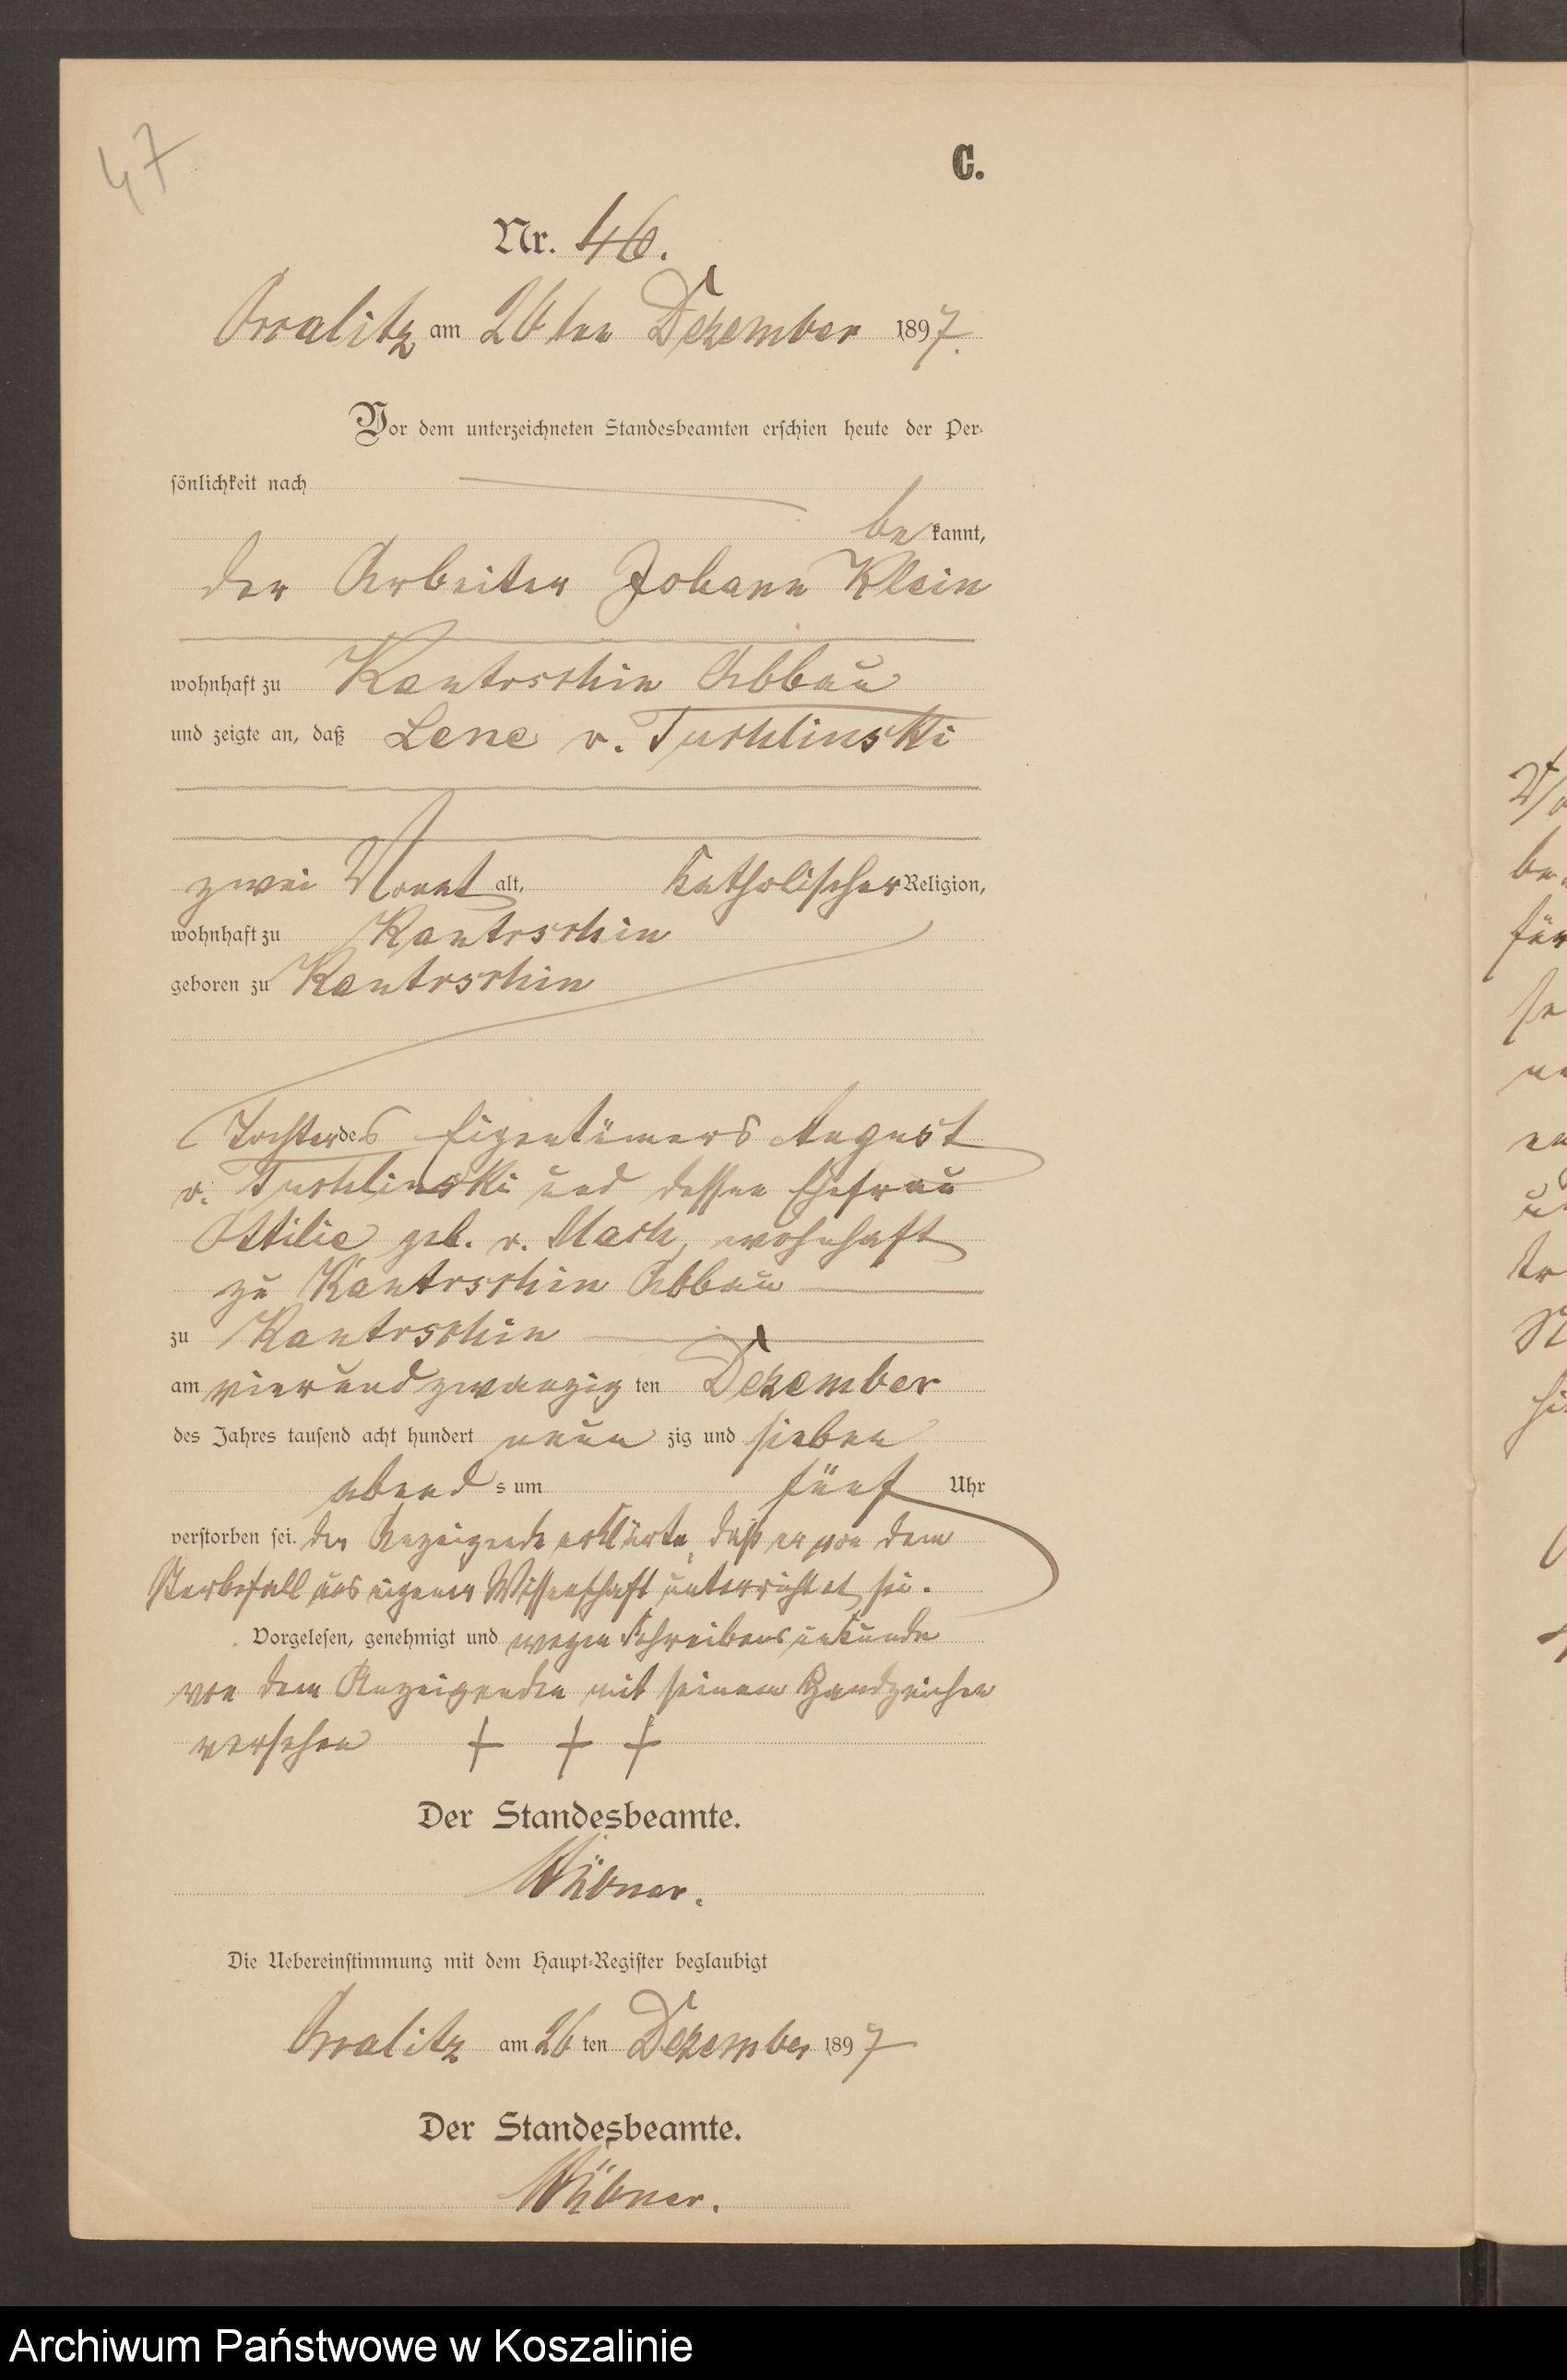 47
C.
Nr. 46.
am 26 ten Dezember 1897.
Vor dem unterzeichneten Standesbeamten erschien heute der Per-
sönlichkeit nach
be kannt,
der Arbeiter Johann Klein
wohnhaft zu Kantrschin Abbau
und zeigte an, daß Lene v.
zwei Monat alt, katholischer Religion,
wohnhaft zu Kantrschin
geboren zu Kantrschin
Tochter des Eigentümers August
v. und dessen Ehefrau
Ottilie geb. v. wohnhaft
zu Kantrschin Abbau
zu Kantrschin
am vierundzwanzig ten Dezember
des Jahres tausend acht hundert neun zig und sieben
abend s um fünf Uhr
verstorben sei. Der Anzeigende erklärte, daß er von dem
Sterbefall aus eigener Wissenschaft unterrichtet sei.
Vorgelesen, genehmigt und wegen Schreibensunkunde
von dem Anzeigenden mit seinem Handzeichen
versehen + + +
Der Standesbeamte.
Die Uebereinstimmung mit dem Haupt-Register beglaubigt
am 26 ten Dezember 1897
Der Standesbeamte.
Archiwum Państwowe w Koszalinie